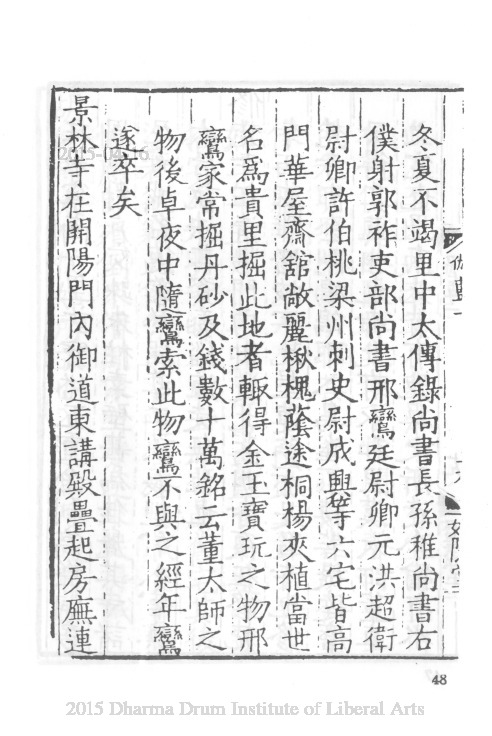 冬夏不竭里中太傅錄尚書長孫稚尚書右
僕射郭祚吏部尚書邢鸞廷尉卿元洪超衛
尉卿許伯桃梁州刺史尉成興等六宅皆高
門華屋齋舘敞麗楸槐蔭途桐楊夾植當世
名爲貴里掘此地者輙得金玉寶玩之物邢
鸞家常掘丹砂及錢數十萬銘云董太師之
物後卓夜中隨鸞索此物鸞不與之經年鸞
遂卒矣
景林寺在開陽門內御道東講殿疊起房廡連
48
2015 Dharma Drum Institute of Liberal Arts